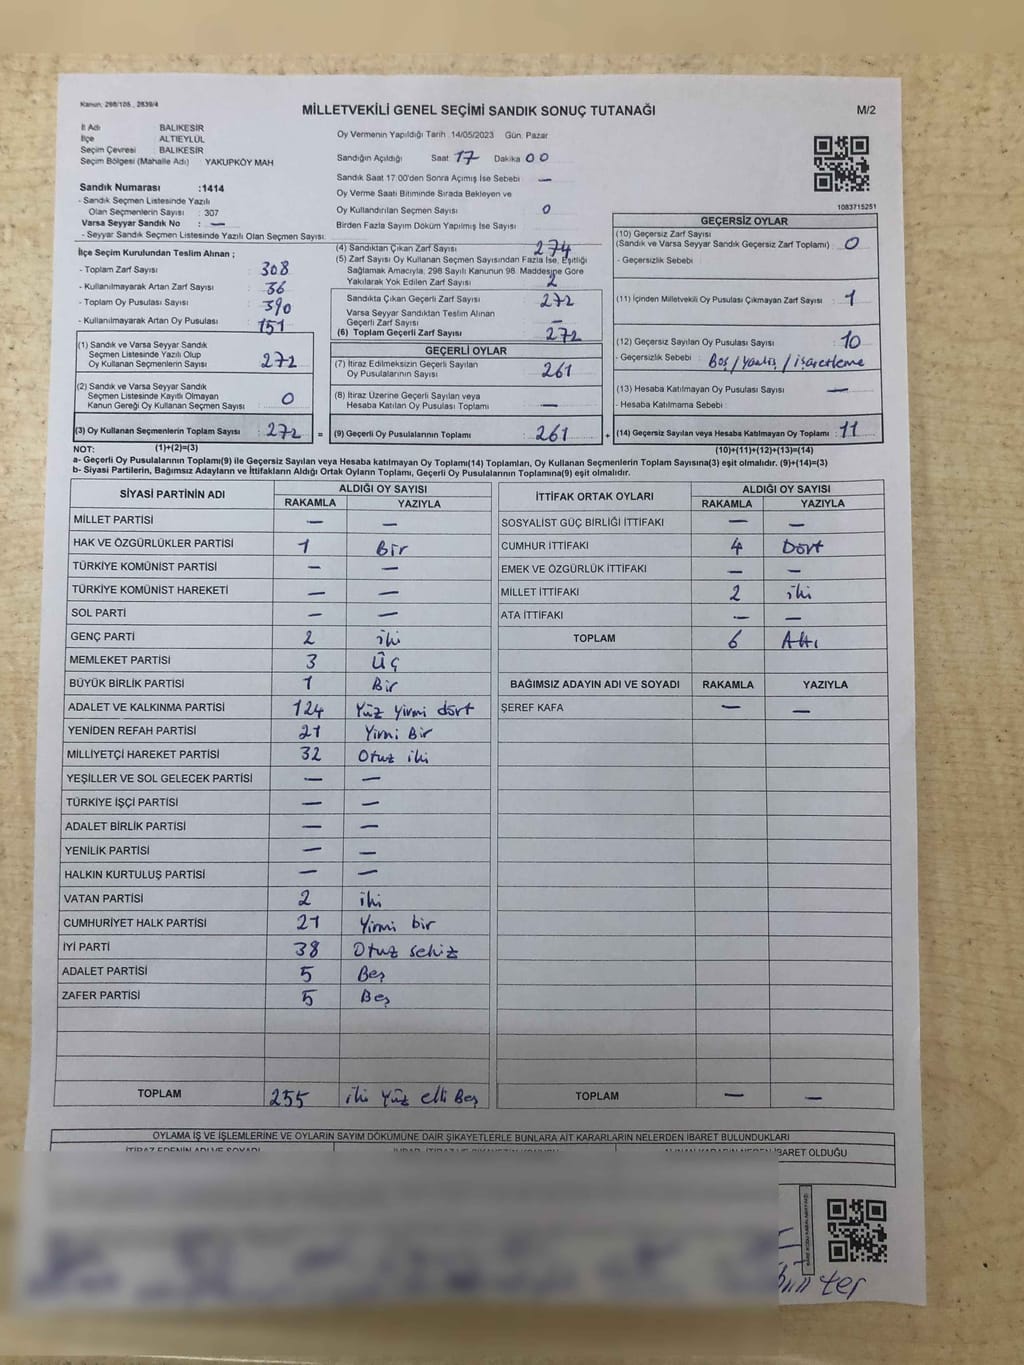 Kanun: 298/105, 2839/4
MİLLETVEKİLİ GENEL SEÇİMİ SANDIK SONUÇ TUTANAĞI
M/2
İl Adı BALIKESİR
İlçe ALTIEYLÜL
Seçim Çevresi BALIKESİR
Seçim Bölgesi (Mahalle Adı) YAKUPKÖY MAH
Sandık Numarası :1414
- Sandık Seçmen Listesinde Yazılı
Olan Seçmenlerin Sayısı : 307
Varsa Seyyar Sandık No : —
- Seyyar Sandık Listesinde Yazılı Olan Seçmen Sayısı:
Oy Vermenin Yapıldığı Tarih : 14/05/2023 Gün: Pazar
Sandığın Açıldığı Saat 17 Dakika 00
Sandık Saat 17:00'den Sonra Açımış İse Sebebi : —
Oy Verme Saati Bitiminde Sırada Bekleyen ve
Oy Kullandırılan Seçmen Sayısı : 0
Birden Fazla Sayım Döküm Yapılmış İse Sayısı :
1083715251
İlçe Seçim Kurulundan Teslim Alınan ;
- Toplam Zarf Sayısı : 308
- Kullanılmayarak Artan Zarf Sayısı : 36
- Toplam Oy Pusulası Sayısı : 390
- Kullanılmayarak Artan Oy Pusulası : 151
(1) Sandık ve Varsa Seyyar Sandık
Seçmen Listesinde Yazılı Olup
Oy Kullanan Seçmenlerin Sayısı : 272
(2) Sandık ve Varsa Seyyar Sandık
Seçmen Listesinde Kayıtlı Olmayan
Kanun Gereği Oy Kullanan Seçmen Sayısı : 0
(3) Oy Kullanan Seçmenlerin Toplam Sayısı : 272 =
(4) Sandıktan Çıkan Zarf Sayısı : 274
(5) Zarf Sayısı Oy Kullanan Seçmen Sayısından Fazla İse, Eşitliği
Sağlamak Amacıyla, 298 Sayılı Kanunun 98. Maddesine Göre
Yakılarak Yok Edilen Zarf Sayısı : 2
Sandıkta Çıkan Geçerli Zarf Sayısı : 272
Varsa Seyyar Sandıktan Teslim Alınan
Geçerli Zarf Sayısı : —
(6) Toplam Geçerli Zarf Sayısı : 272
GEÇERLİ OYLAR
(7) İtiraz Edilmeksizin Geçerli Sayılan
Oy Pusulalarının Sayısı : 261
(8) İtiraz Üzerine Geçerli Sayılan veya
Hesaba Katılan Oy Pusulası Toplamı : —
(9) Geçerli Oy Pusulalarının Toplamı : 261 +
GEÇERSİZ OYLAR
(10) Geçersiz Zarf Sayısı
(Sandık ve Varsa Seyyar Sandık Geçersiz Zarf Toplamı) : 0
- Geçersizlik Sebebi :
(11) İçinden Milletvekili Oy Pusulası Çıkmayan Zarf Sayısı : 1
(12) Geçersiz Sayılan Oy Pusulası Sayısı : 10
- Geçersizlik Sebebi : Boş / yanlış / işaretleme
(13) Hesaba Katılmayan Oy Pusulası Sayısı : —
- Hesaba Katılmama Sebebi :
(14) Geçersiz Sayılan veya Hesaba Katılmayan Oy Toplamı : 11
NOT: (1)+(2)=(3) (10)+(11)+(12)+(13)=(14)
a- Geçerli Oy Pusulalarının Toplamı(9) ile Geçersiz Sayılan veya Hesaba katılmayan Oy Toplamı(14) Toplamları, Oy Kullanan Seçmenlerin Toplam Sayısına(3) eşit olmalıdır. (9)+(14)=(3)
b- Siyasi Partilerin, Bağımsız Adayların ve İttifakların Aldığı Oyların Toplamı, Geçerli Oy Pusulalarının Toplamına(9) eşit olmalıdır.
SİYASİ PARTİNİN ADI ALDIĞI OY SAYISI
RAKAMLA YAZIYLA
MİLLET PARTİSİ — —
HAK VE ÖZGÜRLÜKLER PARTİSİ 1 Bir
TÜRKİYE KOMÜNİST PARTİSİ — —
TÜRKİYE KOMÜNİST HAREKETİ — —
SOL PARTİ — —
GENÇ PARTİ 2 iki
MEMLEKET PARTİSİ 3 Üç
BÜYÜK BİRLİK PARTİSİ 1 Bir
ADALET VE KALKINMA PARTİSİ 124 Yüz yirmi dört
YENİDEN REFAH PARTİSİ 21 Yirmi Bir
MİLLİYETÇİ HAREKET PARTİSİ 32 Otuz iki
YEŞİLLER VE SOL GELECEK PARTİSİ — —
TÜRKİYE İŞÇİ PARTİSİ — —
ADALET BİRLİK PARTİSİ — —
YENİLİK PARTİSİ — —
HALKIN KURTULUŞ PARTİSİ — —
VATAN PARTİSİ 2 iki
CUMHURİYET HALK PARTİSİ 21 Yirmi bir
İYİ PARTİ 38 Otuz sekiz
ADALET PARTİSİ 5 Beş
ZAFER PARTİSİ 5 Beş
TOPLAM 255 iki Yüz elli Beş
İTTİFAK ORTAK OYLARI ALDIĞI OY SAYISI
RAKAMLA YAZIYLA
SOSYALİST GÜÇ BİRLİĞİ İTTİFAKI — —
CUMHUR İTTİFAKI 4 Dört
EMEK VE ÖZGÜRLÜK İTTİFAKI — —
MİLLET İTTİFAKI 2 iki
ATA İTTİFAKI — —
TOPLAM 6 Altı
BAĞIMSIZ ADAYIN ADI VE SOYADI RAKAMLA YAZIYLA
ŞEREF KAFA — —
TOPLAM — —
OYLAMA İŞ VE İŞLEMLERİNE VE OYLARIN SAYIM DÖKÜMÜNE DAİR ŞİKAYETLERLE BUNLARA AİT KARARLARIN NELERDEN İBARET BULUNDUKLARI
İTİRAZ EDENİN ADI VE SOYADI
İBARET OLDUĞU